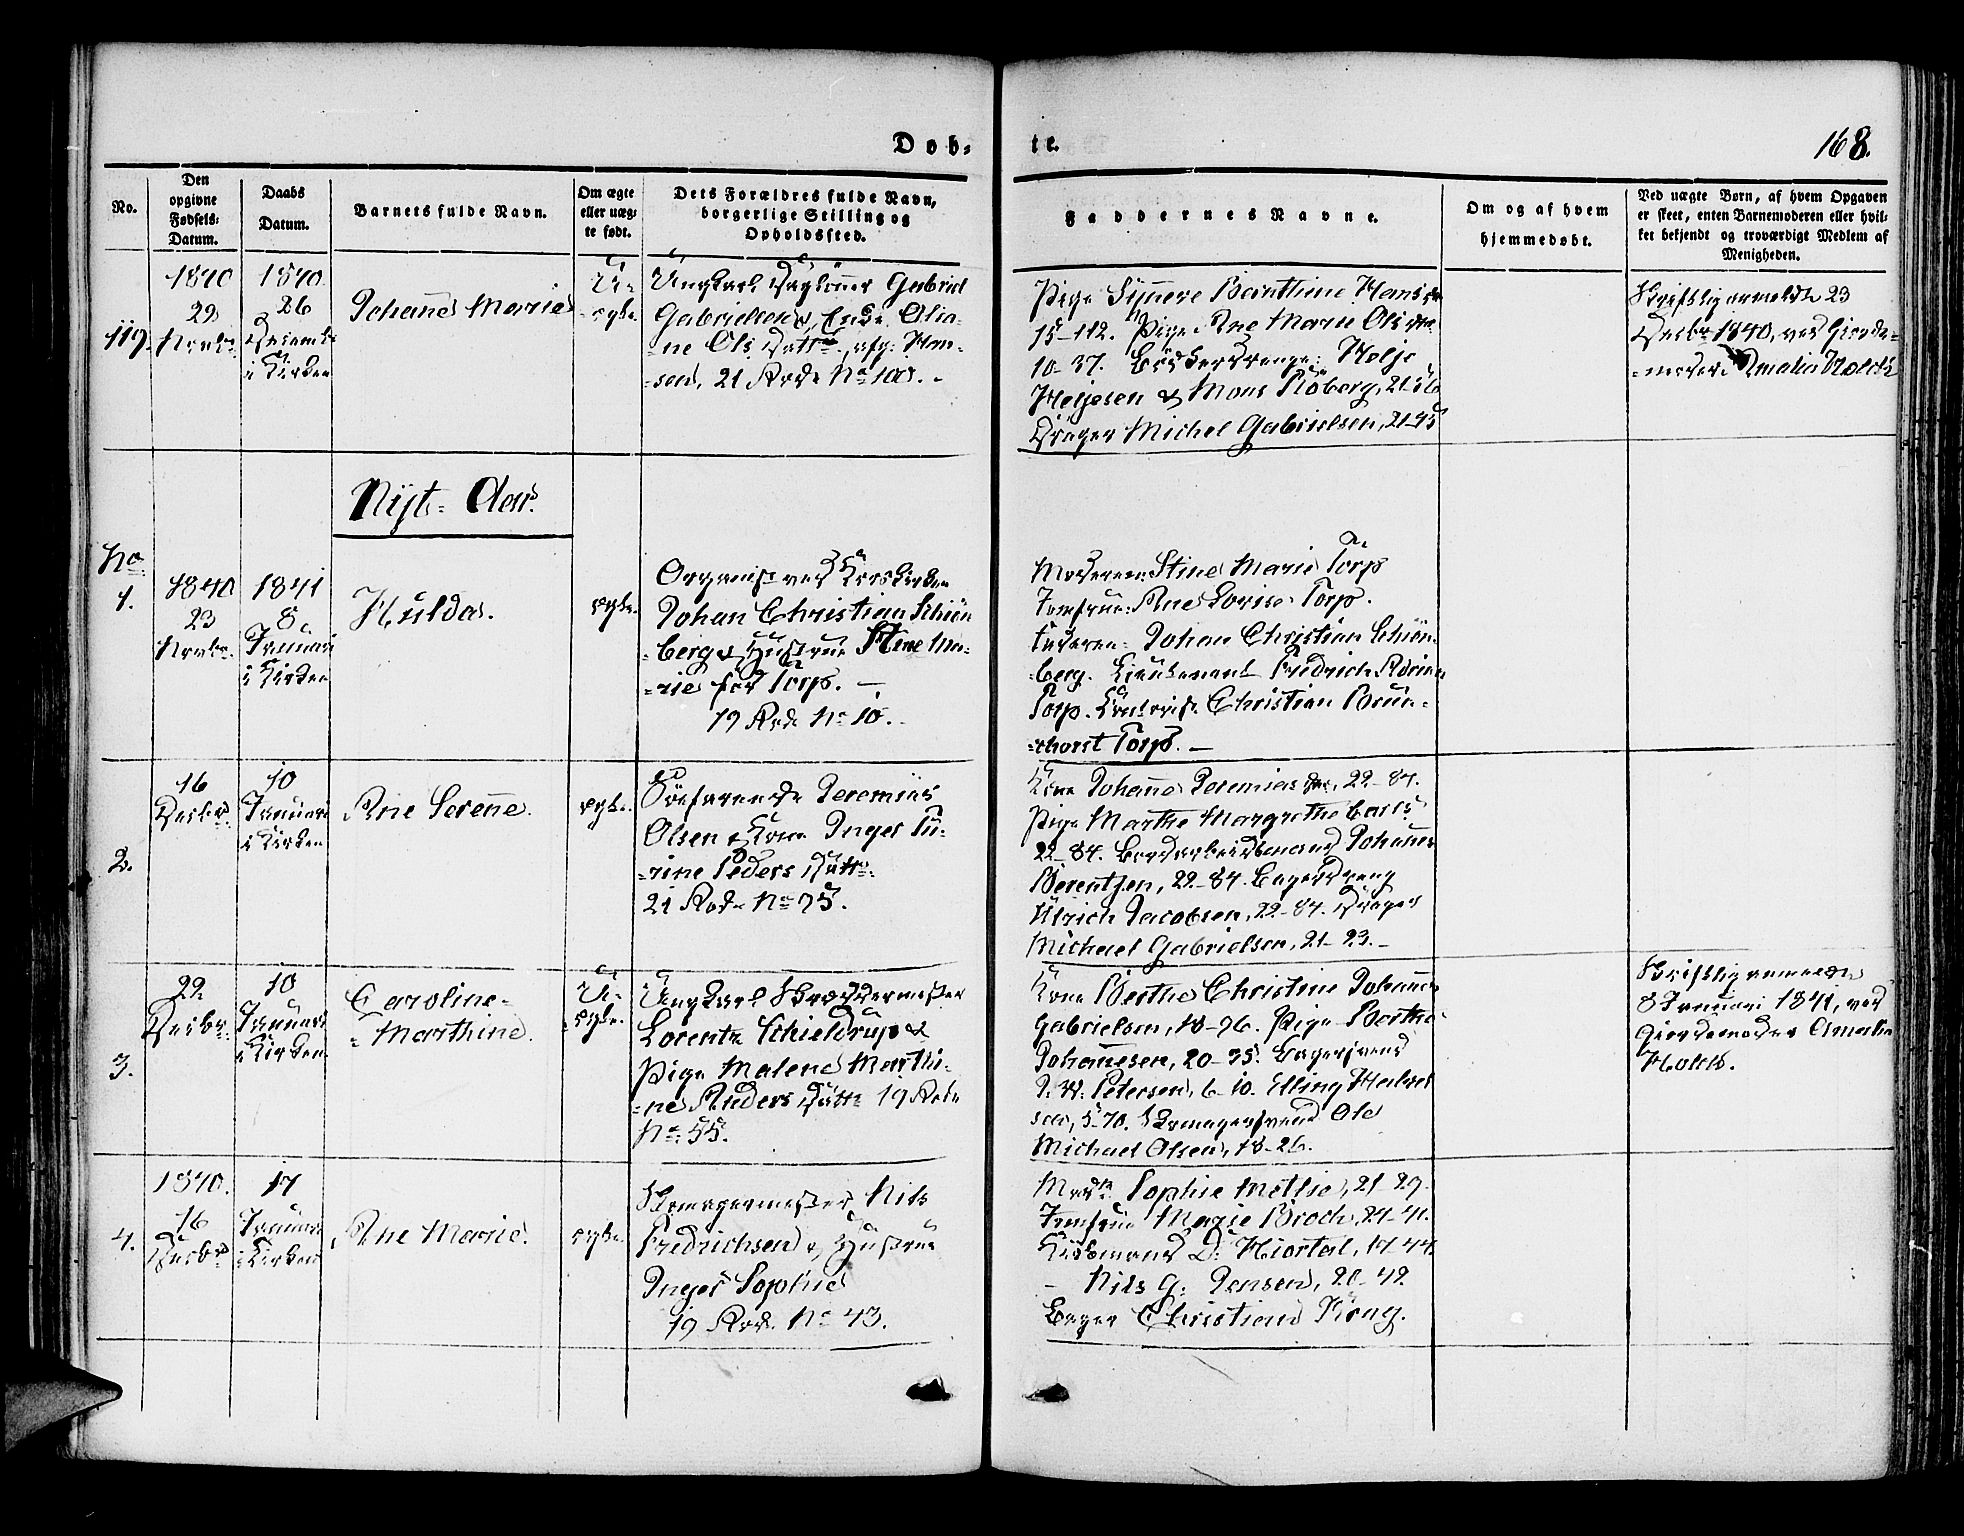 Døb-
te.
168.
No.
Den
opgivne
Fødsels-
Datum.
Daabs
Datum.
Barnets fulde Navn.
Om ægte
eller uæg-
te født.
Dets Forældres fulde Navn,
borgerlige Stilling og
Opholdssted.
Faddernes Navne.
Om og af hvem
hjemmedøbt.
Ved uægte Børn, af hvem Opgaven
er skeet, enten Barnemoderen eller hvil-
ket bekjendt og troværdigt Medlem af
Menigheden.
119.
1840
29
Novbr.
1840.
26
Decemb.
i Kirken
Johanne Marie
U-
ægte.
Ungkarl Daglønner Gabriel
Gabrielsen & Enke Olia-
ne Ols Dattr., afg. Han-
sen, 21 Rode No 100. -
Pige Synneve Bernthine Hansdr
15-112. Pige Ane Marie Olsdr
10-37. Bødkerdrenge: Helje
Heljesen & Mons Roberg, 21-56
Drager Michel Gabrielsen, 21-95
Skriftlig anmeldt 23
Decbr 1840, ved Giorde-
moder Amalia Holch
Nyt-Aar.
No
1.
1840
23
Novbr.
1841
8
Januari
i Kirken
Hulda.
ægte.
Organist ved Korskirken
Johan Christian Schiøn-
berg & Hustrue Stine Ma-
rie fød Torp. -
19 Rode No 10.
Moderen: Stine Marie Torp
Jomfrue: Ane Lovise Torp.
Faderen: Johan Christian Schiøn-
berg. Lieutenant Fredrich Adrian
Torp. Contorist Christian Brun-
chorst Torp. -
2.
16
Decbr.
10
Januari
i Kirken
Ane Serenne.
ægte.
Søefarende Jeremias
Olsen & Kone Inger Tu-
rine Peders Dattr.
21 Rode No 75.
Kone Johanne Jeremias dr., 22-84.
Pige Marthe Margrethe Carls
22-84. Bordarbeidsmand Johannes
Berentsen, 22-84. Bagerdreng
Ulrich Jacobsen, 22-84. Drager
Michael Gabrielsen, 21-23. -
3.
22
Decbr.
10
Januari
i Kirken
Caroline-
Marthine.
U-
ægte.
Ungkarl Skræddermester
Lorentz Schieldrup &
Pige Malene Marthi-
ne Anders Dattr 19 Rode
No. 55.
Kone Berthe Christine Johannes
Gabrielsen, 18-26. Pige Berthe
Johannesen, 20-75. Bagersvend
J. W. Petersen, 6-10. Elling Halvor
sen, 5-70. Skomagersvend Ole
Michael Olsen, 18-26.
Skriftlig anmeldt
8 Januari 1841, ved
Giordemoder Amalia
Holch.
4.
1840.
16
Decbr
17
Januari
i Kirken
Ane Marie.
ægte.
Skomagermester Nils
Fredrichsen & Hustrue
Inger Sophie
19 Rode No 43.
Sophie Meltzer, 21-29.
Jomfrue Marie Broch, 24-41.
Kiøbmand D. Hiortal, 17-44.
- Nils G. Jensen, 20-42.
Bager Christian Kong.